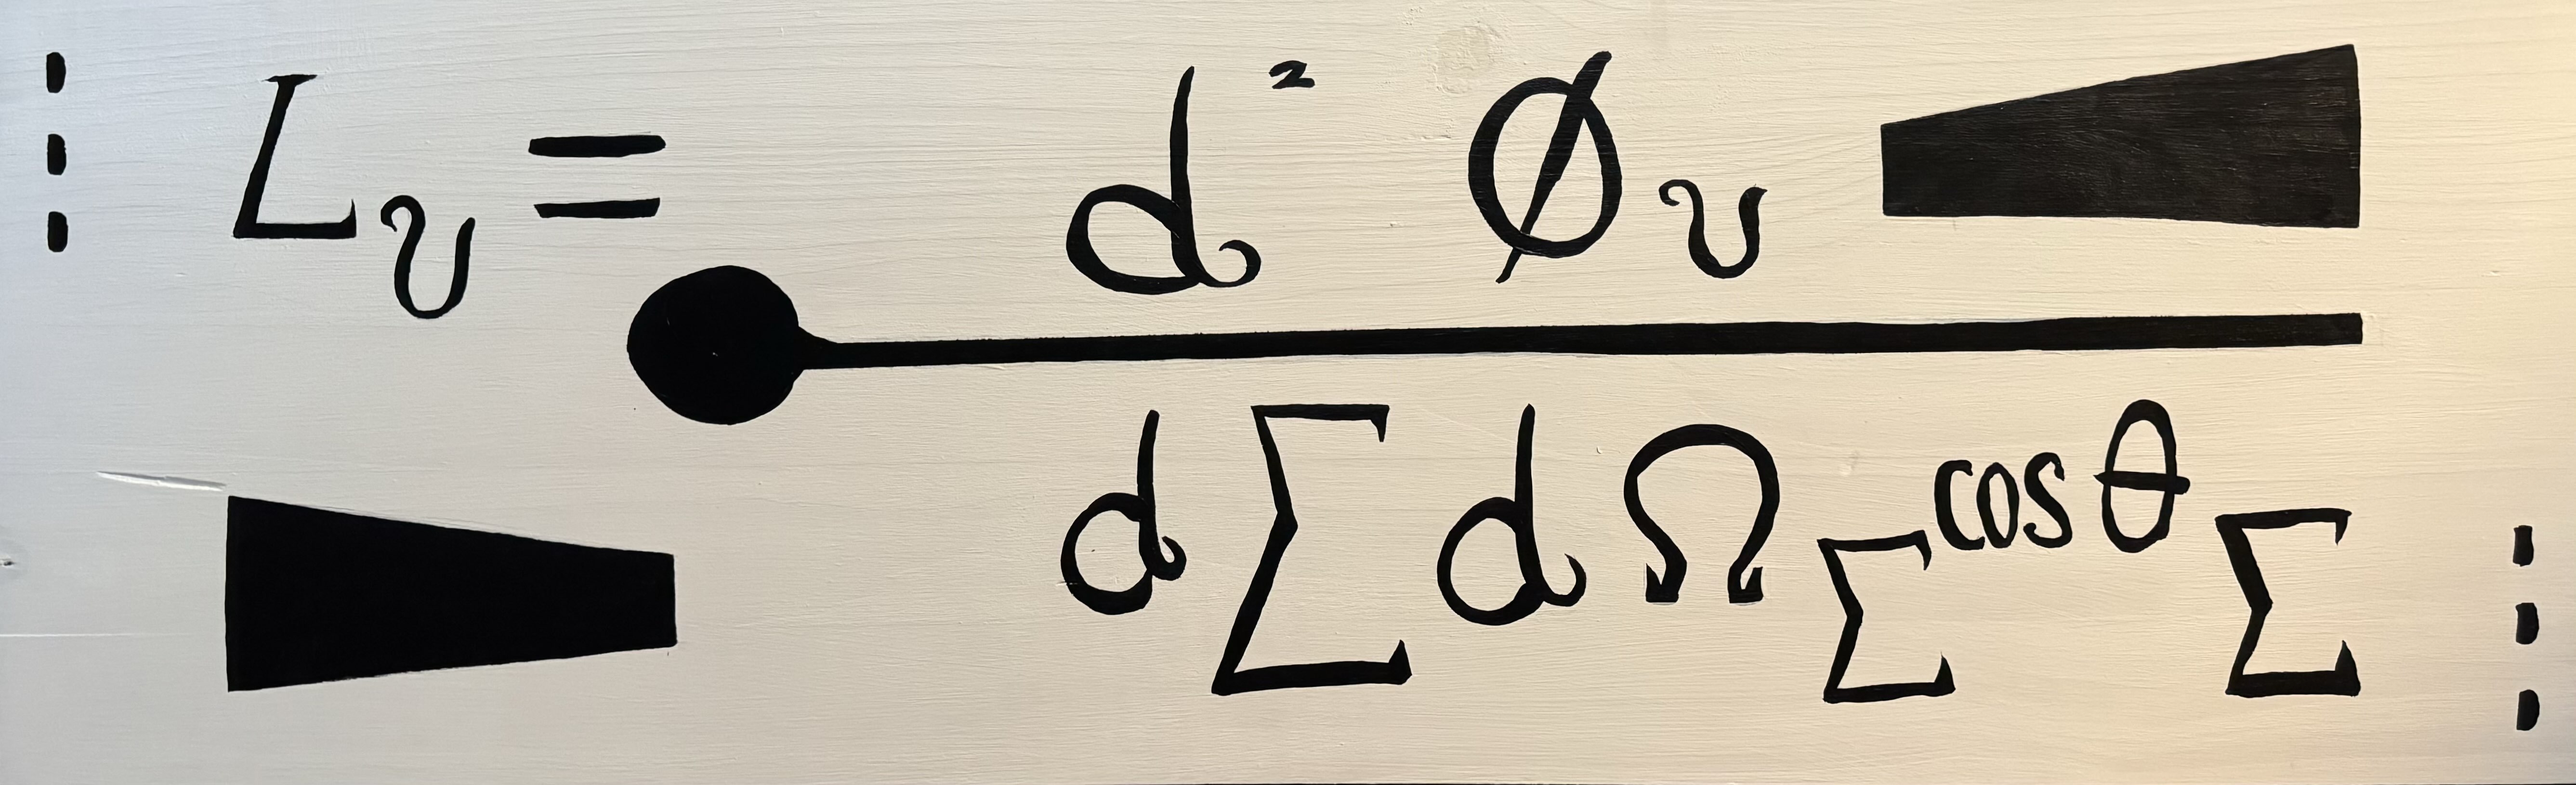 L᷺υ =
d² Φυ
dΣ dΩ Σ cos θ Σ